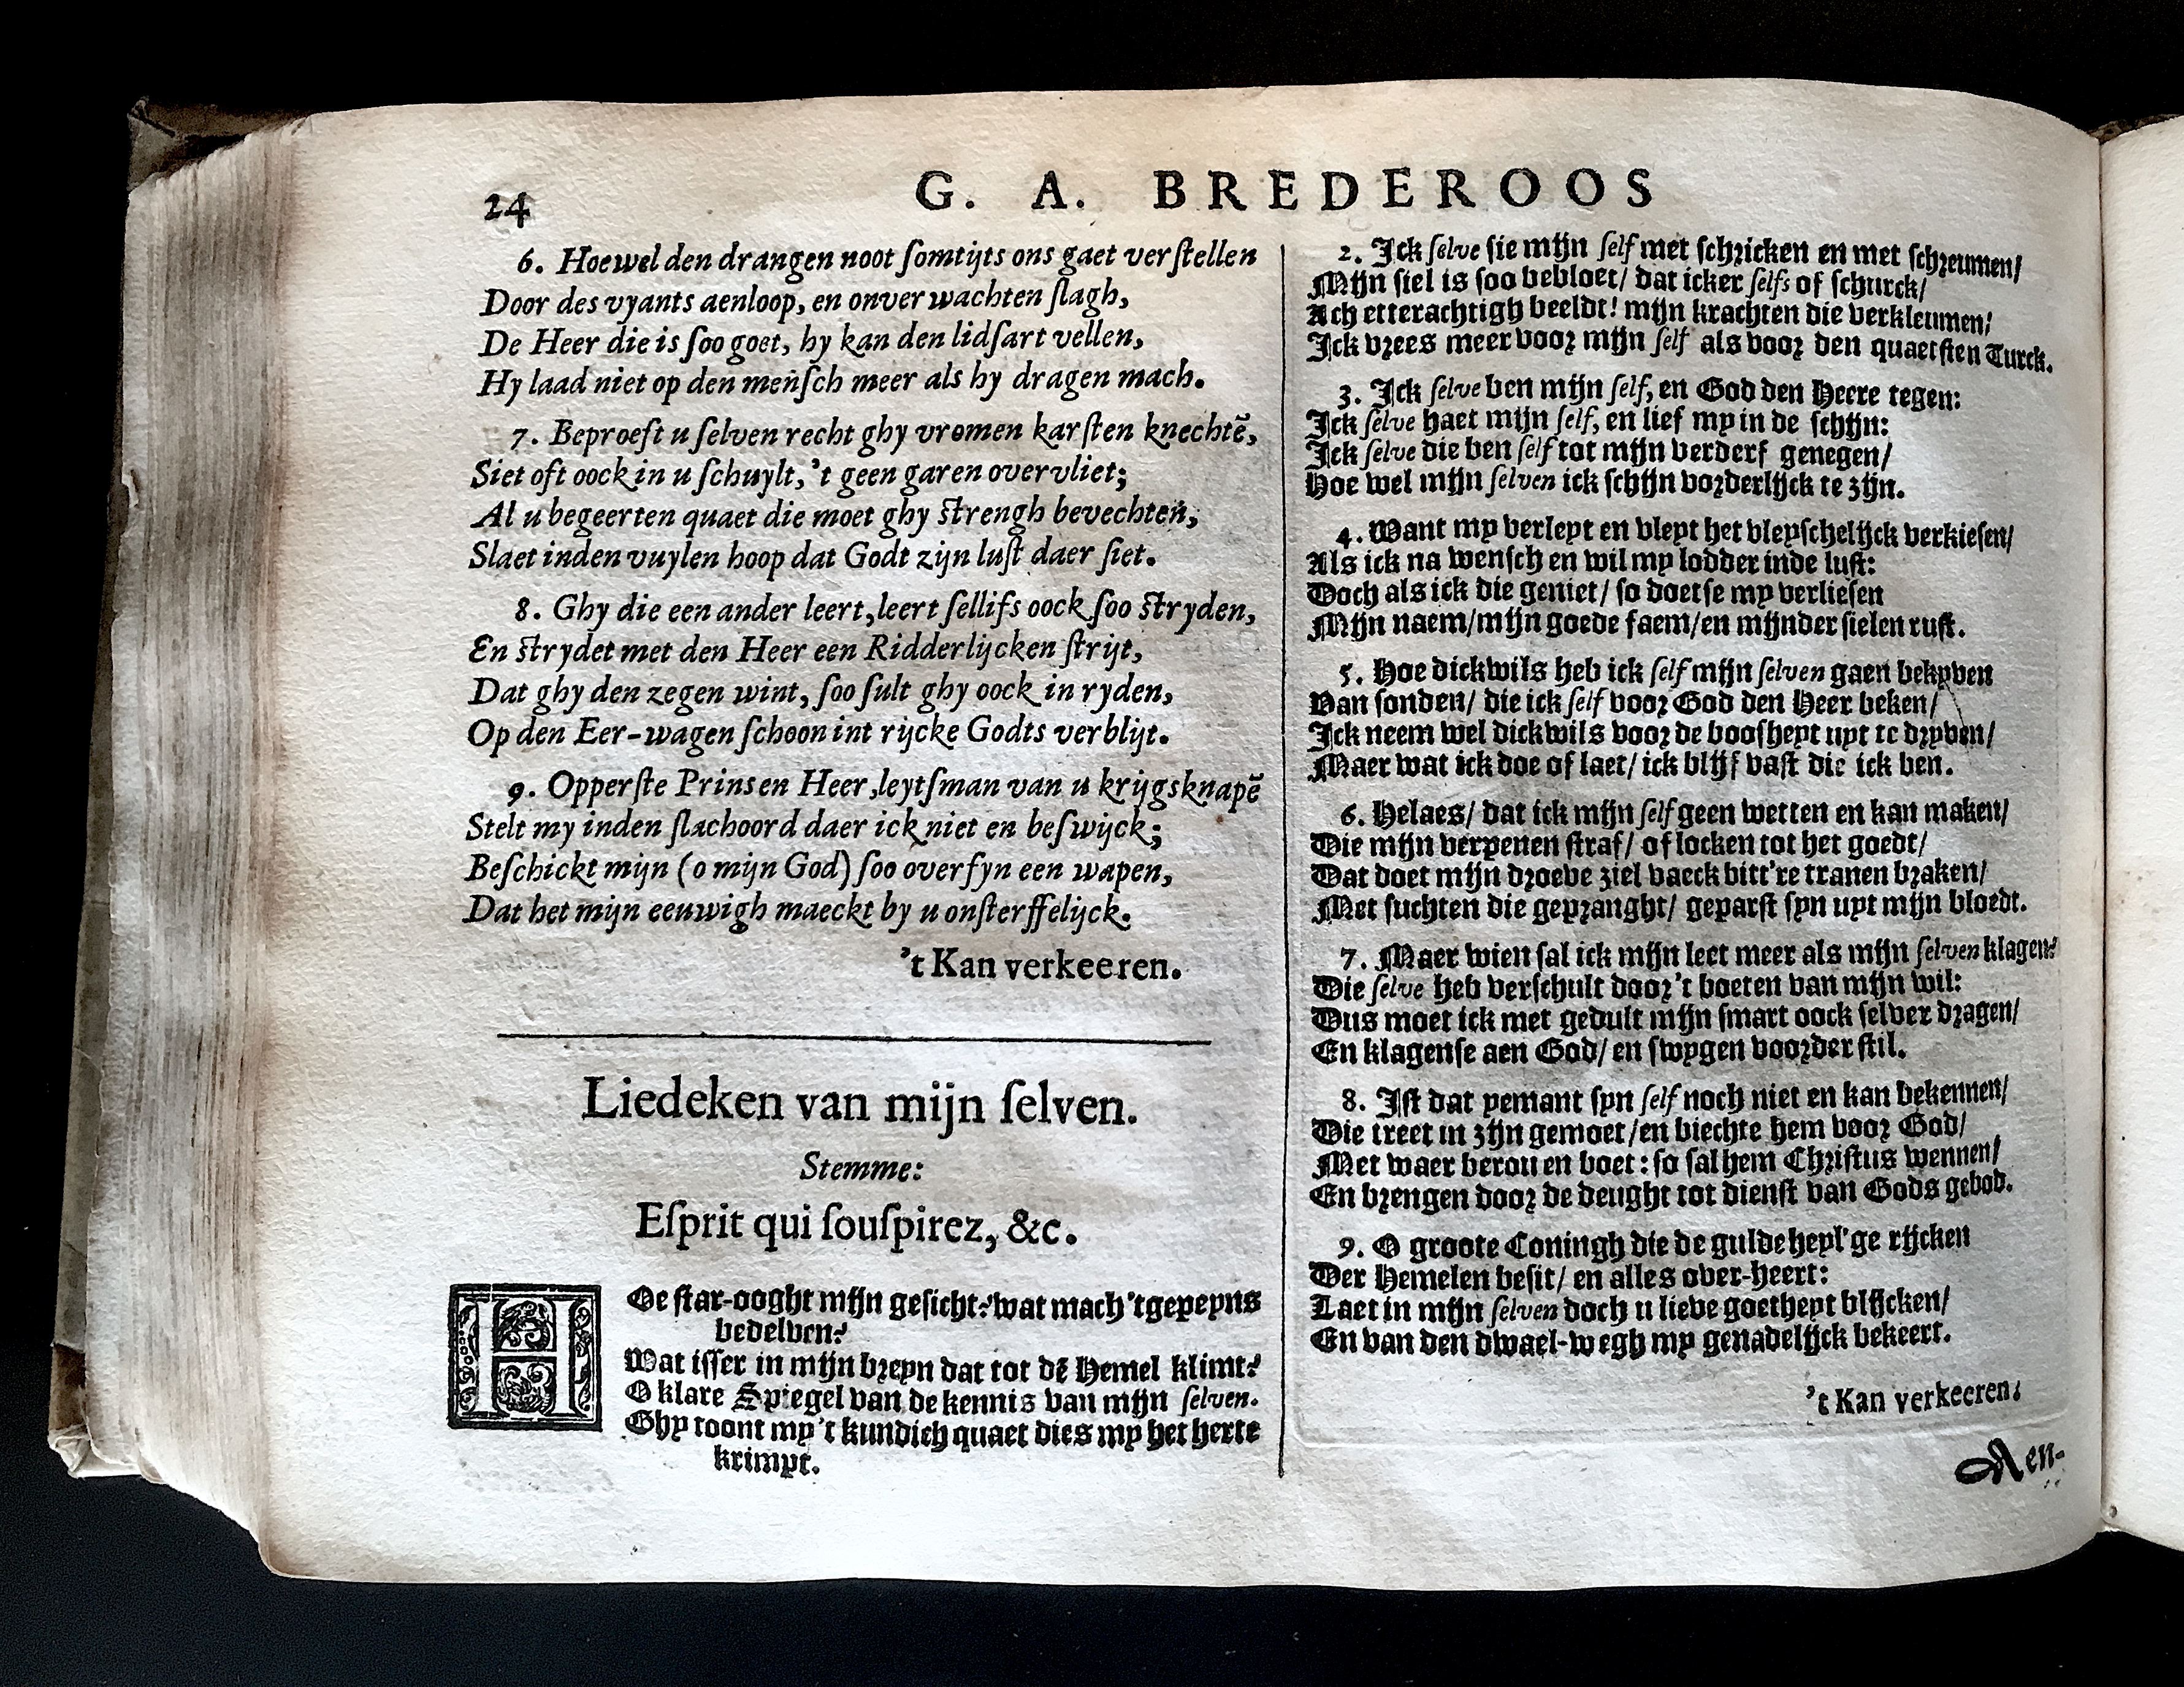 24
G. A. BREDEROOS
6. Hoewel den drangen noot ſomtijts ons gaet verſtellen
Door des vyants aenloop, en onverwachten ſlagh,
De Heer die is ſoo goet, hy kan den lidſart vellen,
Hy laad niet op den menſch meer als hy dragen mach.
7. Beproeft u ſelven recht ghy vromen karſten knechtē,
Siet oft oock in u ſchuylt, 't geen garen overvliet;
Al u begeerten quaet die moet ghy ſtrengh bevechten,
Slaet inden vuylen hoop dat Godt zijn luſt daer ſiet.
8. Ghy die een ander leert, leert ſellifs oock ſoo ſtryden,
En ſtrydet met den Heer een Ridderlijcken ſtrijt,
Dat ghy den zegen wint, ſoo ſult ghy oock in ryden,
Op den Eer-wagen ſchoon int rijcke Godts verblijt.
9. Opperſte Prins en Heer, leytſman van u krijgsknapē
Stelt my inden ſlachoord daer ick niet en beſwijck;
Beſchickt mijn (o mijn God) ſoo overfyn een wapen,
Dat het mijn eeuwigh maeckt by u onſterffelijck.
't Kan verkeeren.
Liedeken van mijn ſelven.
Stemme:
Eſprit qui ſouſpirez, &c.
HOe ſtar-ooght mijn geſicht? wat mach 't gepeyns
bedelven?
Wat iſſer in mijn breyn dat tot dē Hemel klimt?
O klare Spiegel van de kennis van mijn ſelven.
Ghy toont my 't kundich quaet dies my het herte
krimpt.
2. Ick ſelve ſie mijn ſelf met ſchricken en met ſchreumen/
Mijn ſiel is ſoo bebloet/ dat icker ſelfs of ſchurck/
Ach etterachtigh beeldt! mijn krachten die verkleumen/
Ick vrees meer voor mijn ſelf als voor den quaetſten Turck.
3. Ick ſelve ben mijn ſelf, en God den Heere tegen:
Ick ſelve haet mijn ſelf, en lief my in de ſchijn:
Ick ſelve die ben ſelf tot mijn verderf genegen/
Hoe wel mijn ſelven ick ſchijn vorderlijck te zijn.
4. Want my verleyt en vleyt het vleyſchelijck verkieſen/
Als ick na wenſch en wil my lodder inde luſt:
Doch als ick die geniet/ ſo doetſe my verlieſen
Mijn naem/ mijn goede faem/ en mijnder ſielen ruſt.
5. Hoe dickwils heb ick ſelf mijn ſelven gaen bekyven
Van ſonden/ die ick ſelf voor God den Heer beken/
Ick neem wel dickwils voor de boosheyt uyt te dryven/
Maer wat ick doe of laet/ ick blijf vaſt die ick ben.
6. Helaes/ dat ick mijn ſelf geen wetten en kan maken/
Die mijn verpenen ſtraf/ of locken tot het goedt/
Dat doet mijn droeve ziel vaeck bitt're tranen braken/
Met ſuchten die gepranght/ geparſt ſyn uyt mijn bloedt.
7. Maer wien ſal ick mijn leet meer als mijn ſelven klagen?
Die ſelve heb verſchult door 't boeten van mijn wil:
Dus moet ick met gedult mijn ſmart oock ſelver dragen/
En klagenſe aen God/ en ſwygen voorder ſtil.
8. Iſt dat yemant ſyn ſelf noch niet en kan bekennen/
Die treet in zijn gemoet/ en biechte hem voor God/
Met waer berou en boet: ſo ſal hem Chriſtus wennen/
En brengen door de deught tot dienſt van Gods gebod.
9. O groote Coningh die de gulde heyl'ge rijcken
Der Hemelen beſit/ en alles over-heert:
Laet in mijn ſelven doch u lieve goetheyt blijcken/
En van den dwael-wegh my genadelijck bekeert.
't Kan verkeeren.
Aen-